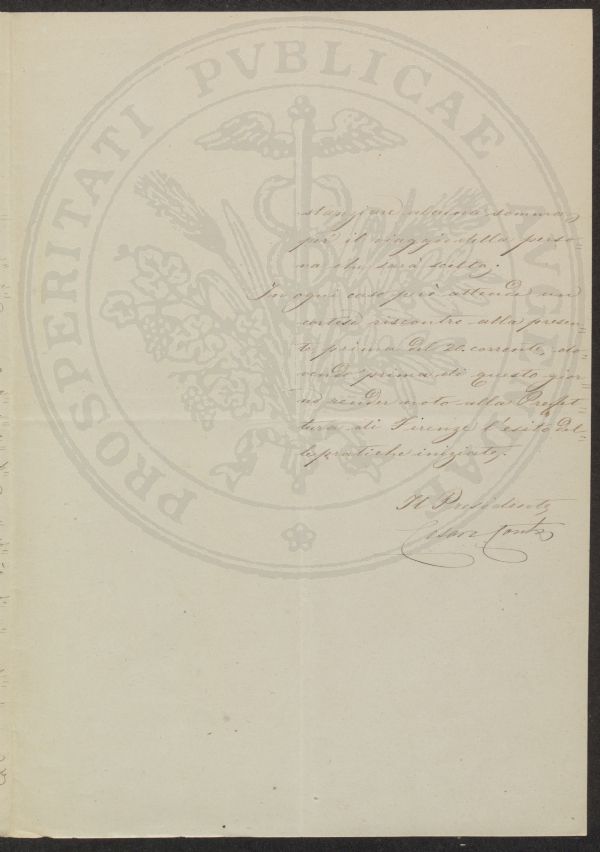 PROSPERITATI PVBLICAE AVGENDAE
stanziare alcuna somma
per il viaggio della perso=
na che sarà scelta.
In ogni caso però attendo un
cortese riscontro alla presen=
te prima del 20. corrente, do=
vendo prima di questo gior=
no render noto alla Prefet=
tura di Firenze l'esito del=
le pratiche iniziate.
Il Presidente